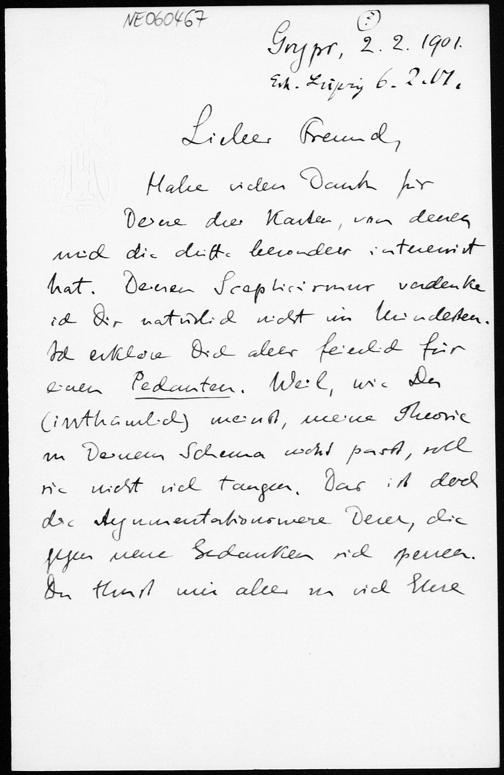 NE060467
(?)
Gryps, 2. 2. 1901.
Erh. Leipzig 6. 2. 01.
Lieber Freund,
Habe vielen Dank für
Deine drei Karten, von denen
mich die dritte besonders interessirt
hat. Deinen Scepticismus verdenke
ich Dir natürlich nicht im Mindesten.
Ich erkläre Dich aber feierlich für
einen Pedanten. Weil, wie Du
(irrthümlich) meinst, meine Theorie
in Deinem Schema nicht passt, soll
sie nicht viel taugen. Das ist doch
die Argumentationsweise Derer, die
gegen neue Gedanken sich sperren.
Du thust mir aber zu viel Ehre